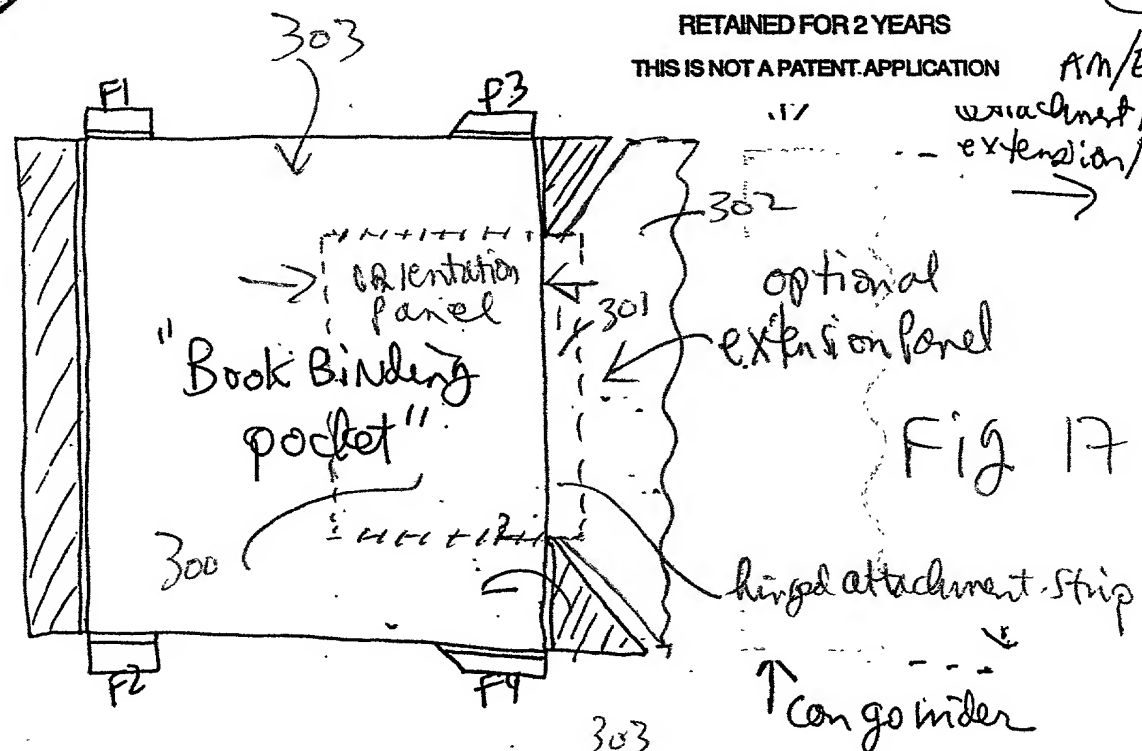 303
RETAINED FOR 2 YEARS
THIS IS NOT A PATENT APPLICATION
F1
F3
extension/
302
orientation
panel
301
optional
extension Panel
"Book Binding
pocket"
Fig 17
300
hinged attachment strip
F2
F4
can go under
303